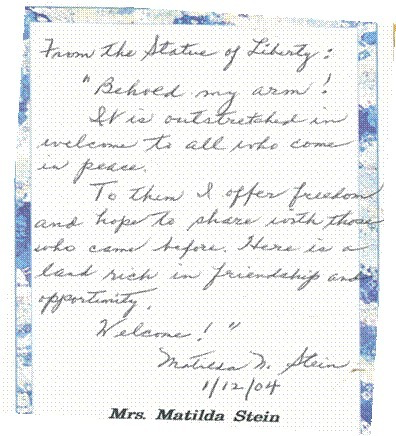 From the Statue of Liberty:
"Behold my arm!
It is outstretched in
welcome to all who come
in peace.
To them I offer freedom
and hope to share with those
who came before. Here is a
land rich in friendship and
opportunity.
Welcome!"
Matilda N. Stein
1/12/04
Mrs. Matilda Stein